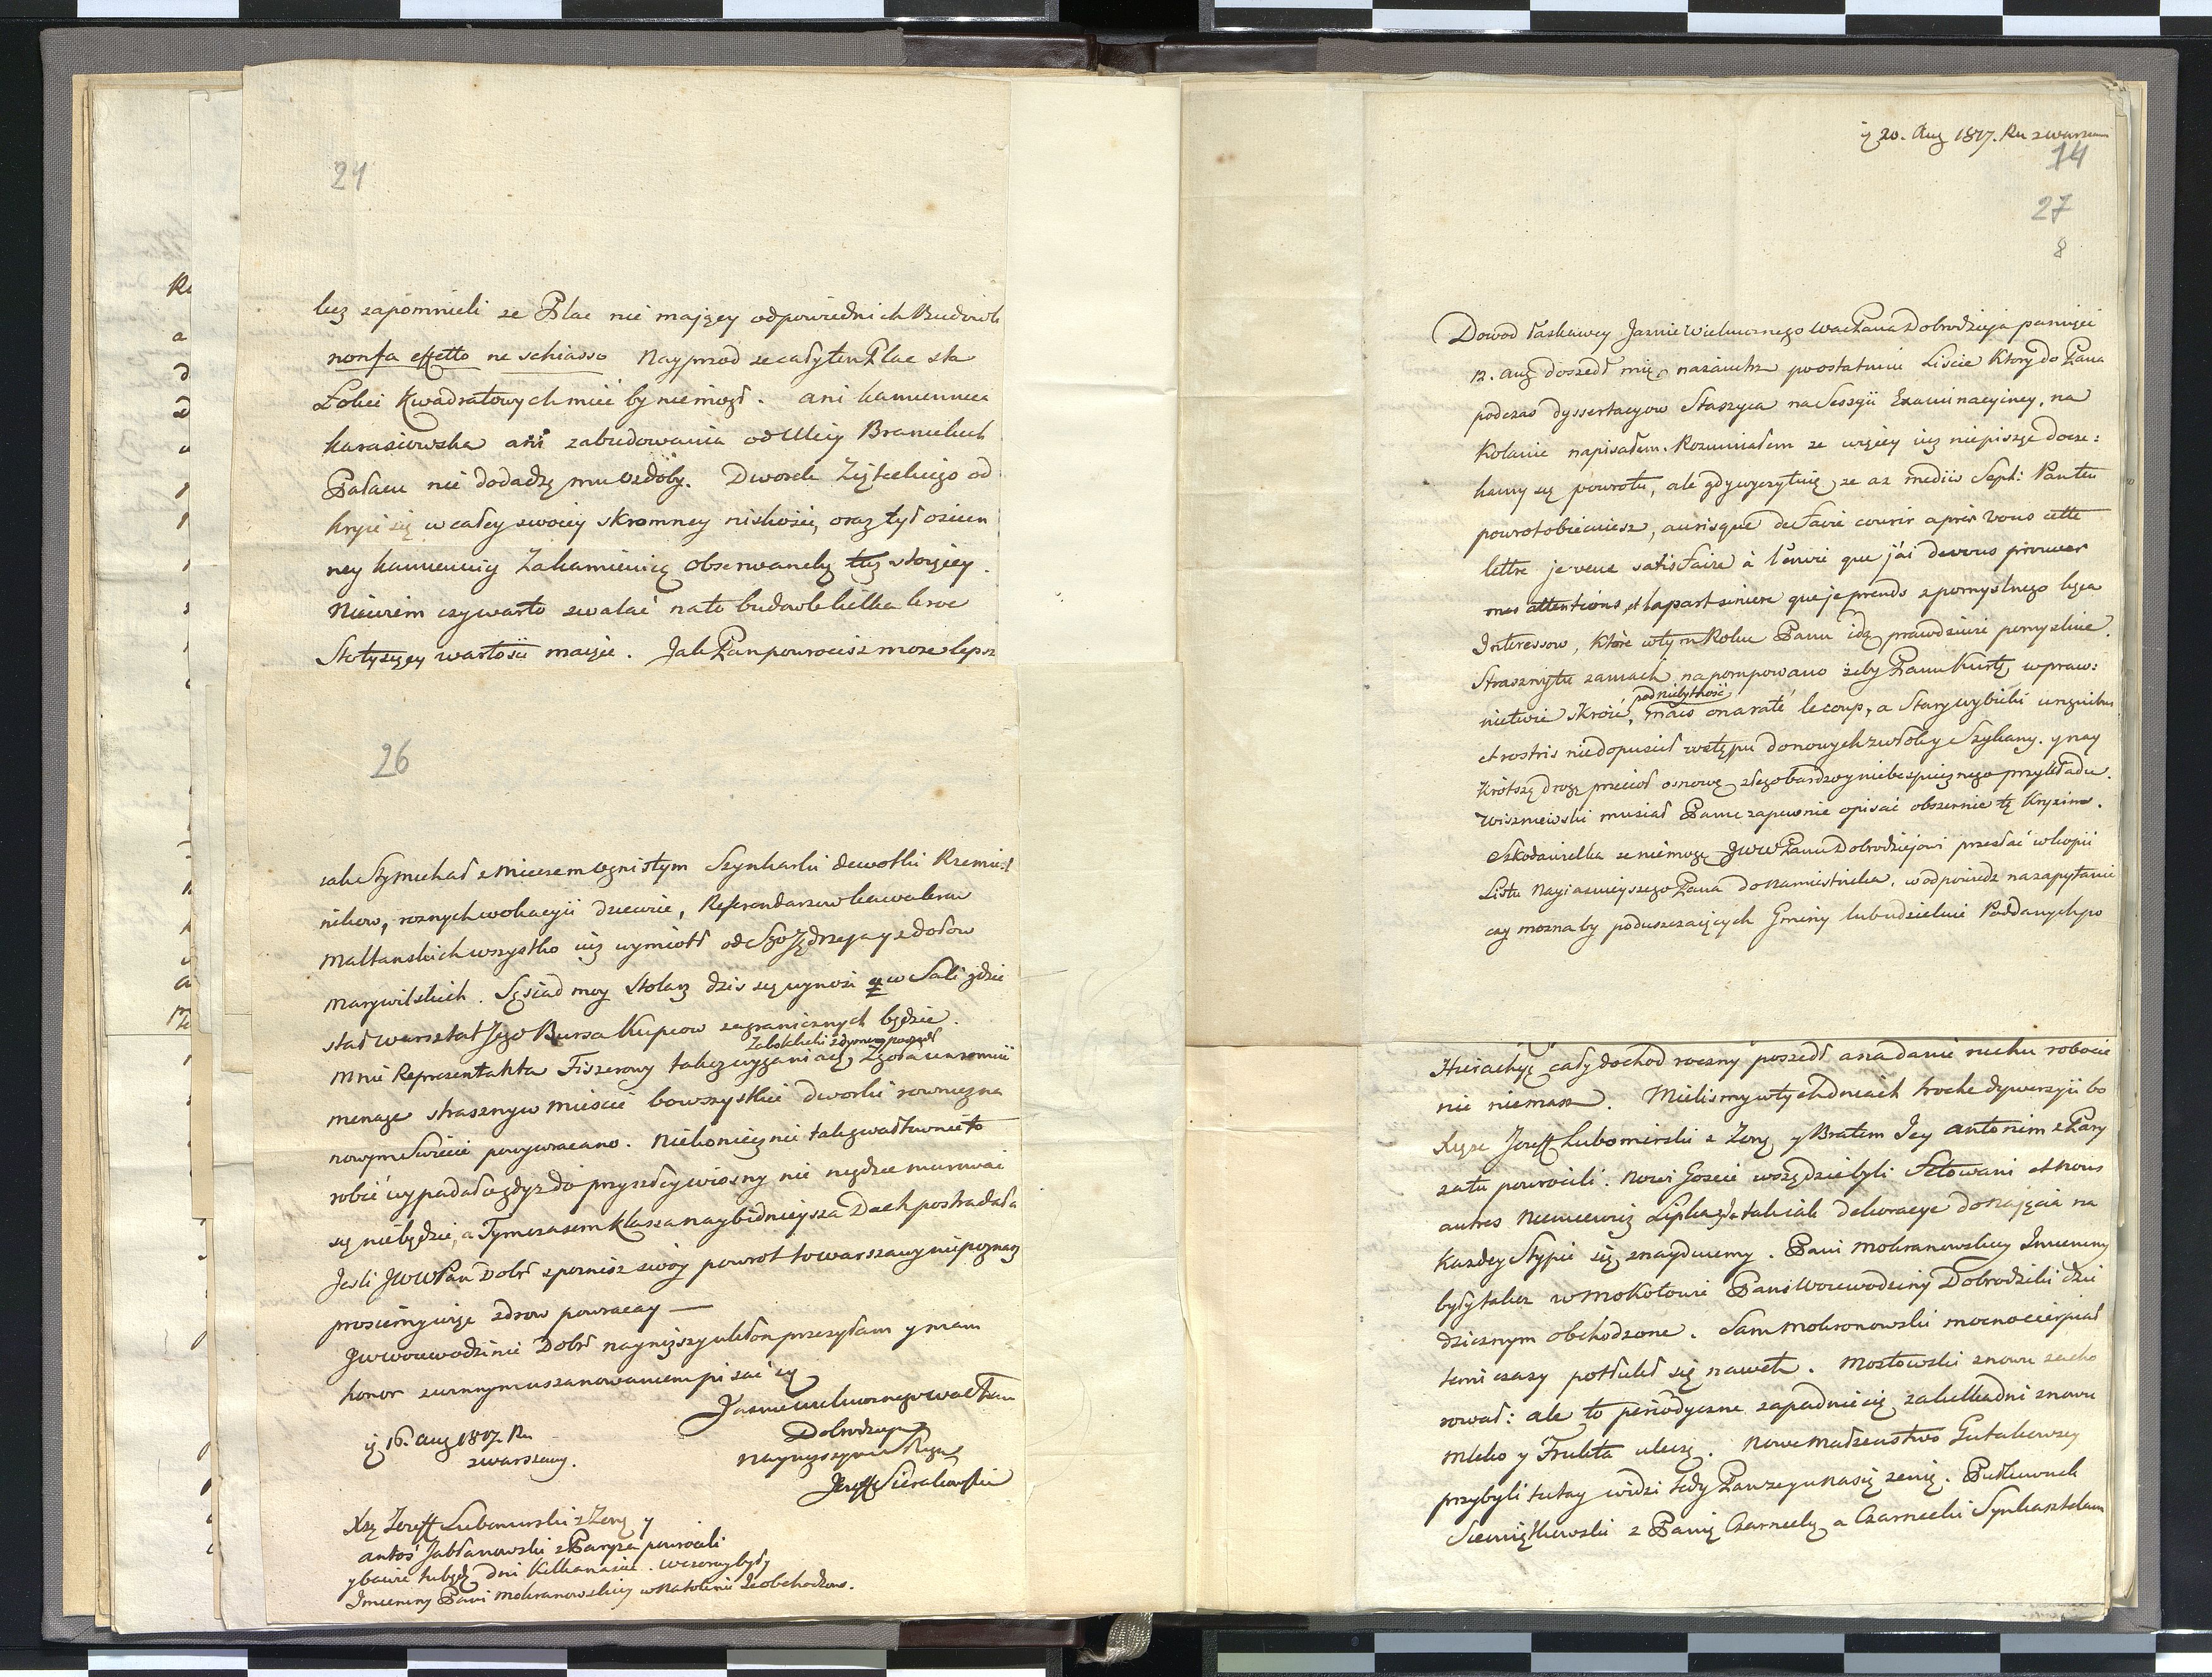 24
luz zapomnieli ze Plac nie maiący odpowiednich Budowli
non fa effetto ne schiasso Nayprzod ze cały ten Plac sta
Łokci Kwadratowych mieć by niemogł. ani kamienica
karasiowska ani zabudowania od Ulicy Branickich
Pałacu nie dodadzą mu ozdoby. Dworek od
kryie się w całey swoiey skromney niskości, oraz tył
ney kamienicy Zakamienicą
Niewiem czy warto zwalać na to budowle kilka kroc
Stotysięcy wartosci maiące. Jak Pan powrocisz moze lepsz
26
zak Sty Michał z Mieczem ognistym Szynkarki dewotki Rzemieśl
nikow, roznych wokacyji dziewic, Referendarzow kawalerow
Maltanskich wszystko iuz wymiotł od Sgo Jędrzeja y z dołow
Marywilskich. Sąsiad moy Stolarz dzis się wynosi y w Sali gdzie
stał warsztat Jego Bursa Kupcow zagranicznych będzie.
Zaboklicki z dymem poszedł
Mnie Reprezentanta Fiszerowy takze wyganiaią, Zgoła
menage straszny w miescie bo wszystkie dworki rownie z na
nowym Swiecie powywracano. Niekoniecznie tak gwałtownie to
robić wypadało gdyz do przyszłey wiosny nic nigdzie murować
się niebędzie, a Tymczasem klassa naybidnieysza Dach postradała
Jesli JWWPan Dobr spoznisz swoy powrot to warszawy niepoznasz
prosiemy więc zdrow powracay —
JWWoiewodzinie Dobr nayniższy ukłon przesyłam y mam
honor z winnym uszanowaniem pisać się
Jasnie wielmoznego wac Pana
Dobrodzieja
nayniszszym Sługą
Jozeff Sierakowski
ię 16. aug 1817. Ru
z warszawy.
Xżę Jozeff Lubomirski z Zoną y
antoś Jabłanowski z Paryza powrocili
y bawić tu będą dni Kilkanascie. wczoray były
Imieniny Pani Mokranowskiey w Natolinie obchodzone.
ię 20. Aug 1817. Ru z warszaw
14
27
8
Dowod łaskawey Jasnie Wielmoznego wac Pana Dobrodzieja pamięci
12. aug doszedł mię nazaiutrz po ostatnim Liście Ktory do Pana
podczas dyssertacyow Staszyca na Sessyii Examinacyiney, na
Kolanie napisałem. Rozumiałem ze więcey iuz niepisząc docze:
kamy się powrotu, ale gdy wyczytuię ze az mediis Sept: Pan ten
powrot obiecuiesz, au risque de faire courir après vous cette
lettre je veux satisfaire à l'envie que j'ai de vous prouver
mes attentions, et la part sincere que je prends z pomyslnego biegu
Interessow, które w tym Roku Panu idą prawdziwie pomyslnie.
Straszny tu zamach napompowano żeby Panu Kurtę w praw:
pod niebytność
nictwie skroić, mais on a raté le coup, a Stary wybicki unguibus
et rostris niedopuscił wstępu do nowych zwłoky Szykany. y nay
krotszą drogą przeciął osnowę złego bardzo y niebespiecznego przykładu.
Wiszniewski musiał Panu zapewnie opisać obszernie tę Kryzim.
Szkoda wielka ze niemogę JWWPanu Dobrodziejowi przesłać w kopii
Listu Nayiasnieyszego Pana do Namiestnika, w odpowiedz na zapytanie
czy mozna by poduszczaiących Gminy lub udzielnie Poddanych po
cały dochod roczny poszedł a na danie ruchu robocie
nic niemasz. Mielismy w tych dniach troche dywersyii bo
Xiąze Jozeff Lubomirski z Zoną y Bratem Jey antonim z Pary
za tu powrocili. Nowi Goscie wszędzie byli Fetowani et nous
autres Niemcewicz Lipka tak iak dekoracye do Najęcia na
kazdey Stypie się znayduiemy. Pani Mokranowskiey Imieniny
były takze w Mokotowie Pani Woiewodziny Dobrodziki
dzicznym obchodzone. Sam Mokronowski mocno cierpiał
temi czasy potłukł się nawet. Mostowski znowu zacho
rował: ale to periodyczne zapadnięcie, zakilka dni znowu
Mleko y Frukta uleczą. Nowe Małzenstwo Gutakowscy
przybyli tutay widzi tedy Pan ze y u nas się zenią. Pułkownik
Siemiątkowski z Panią Czarnecką a Czarnecki Syn kasztelana